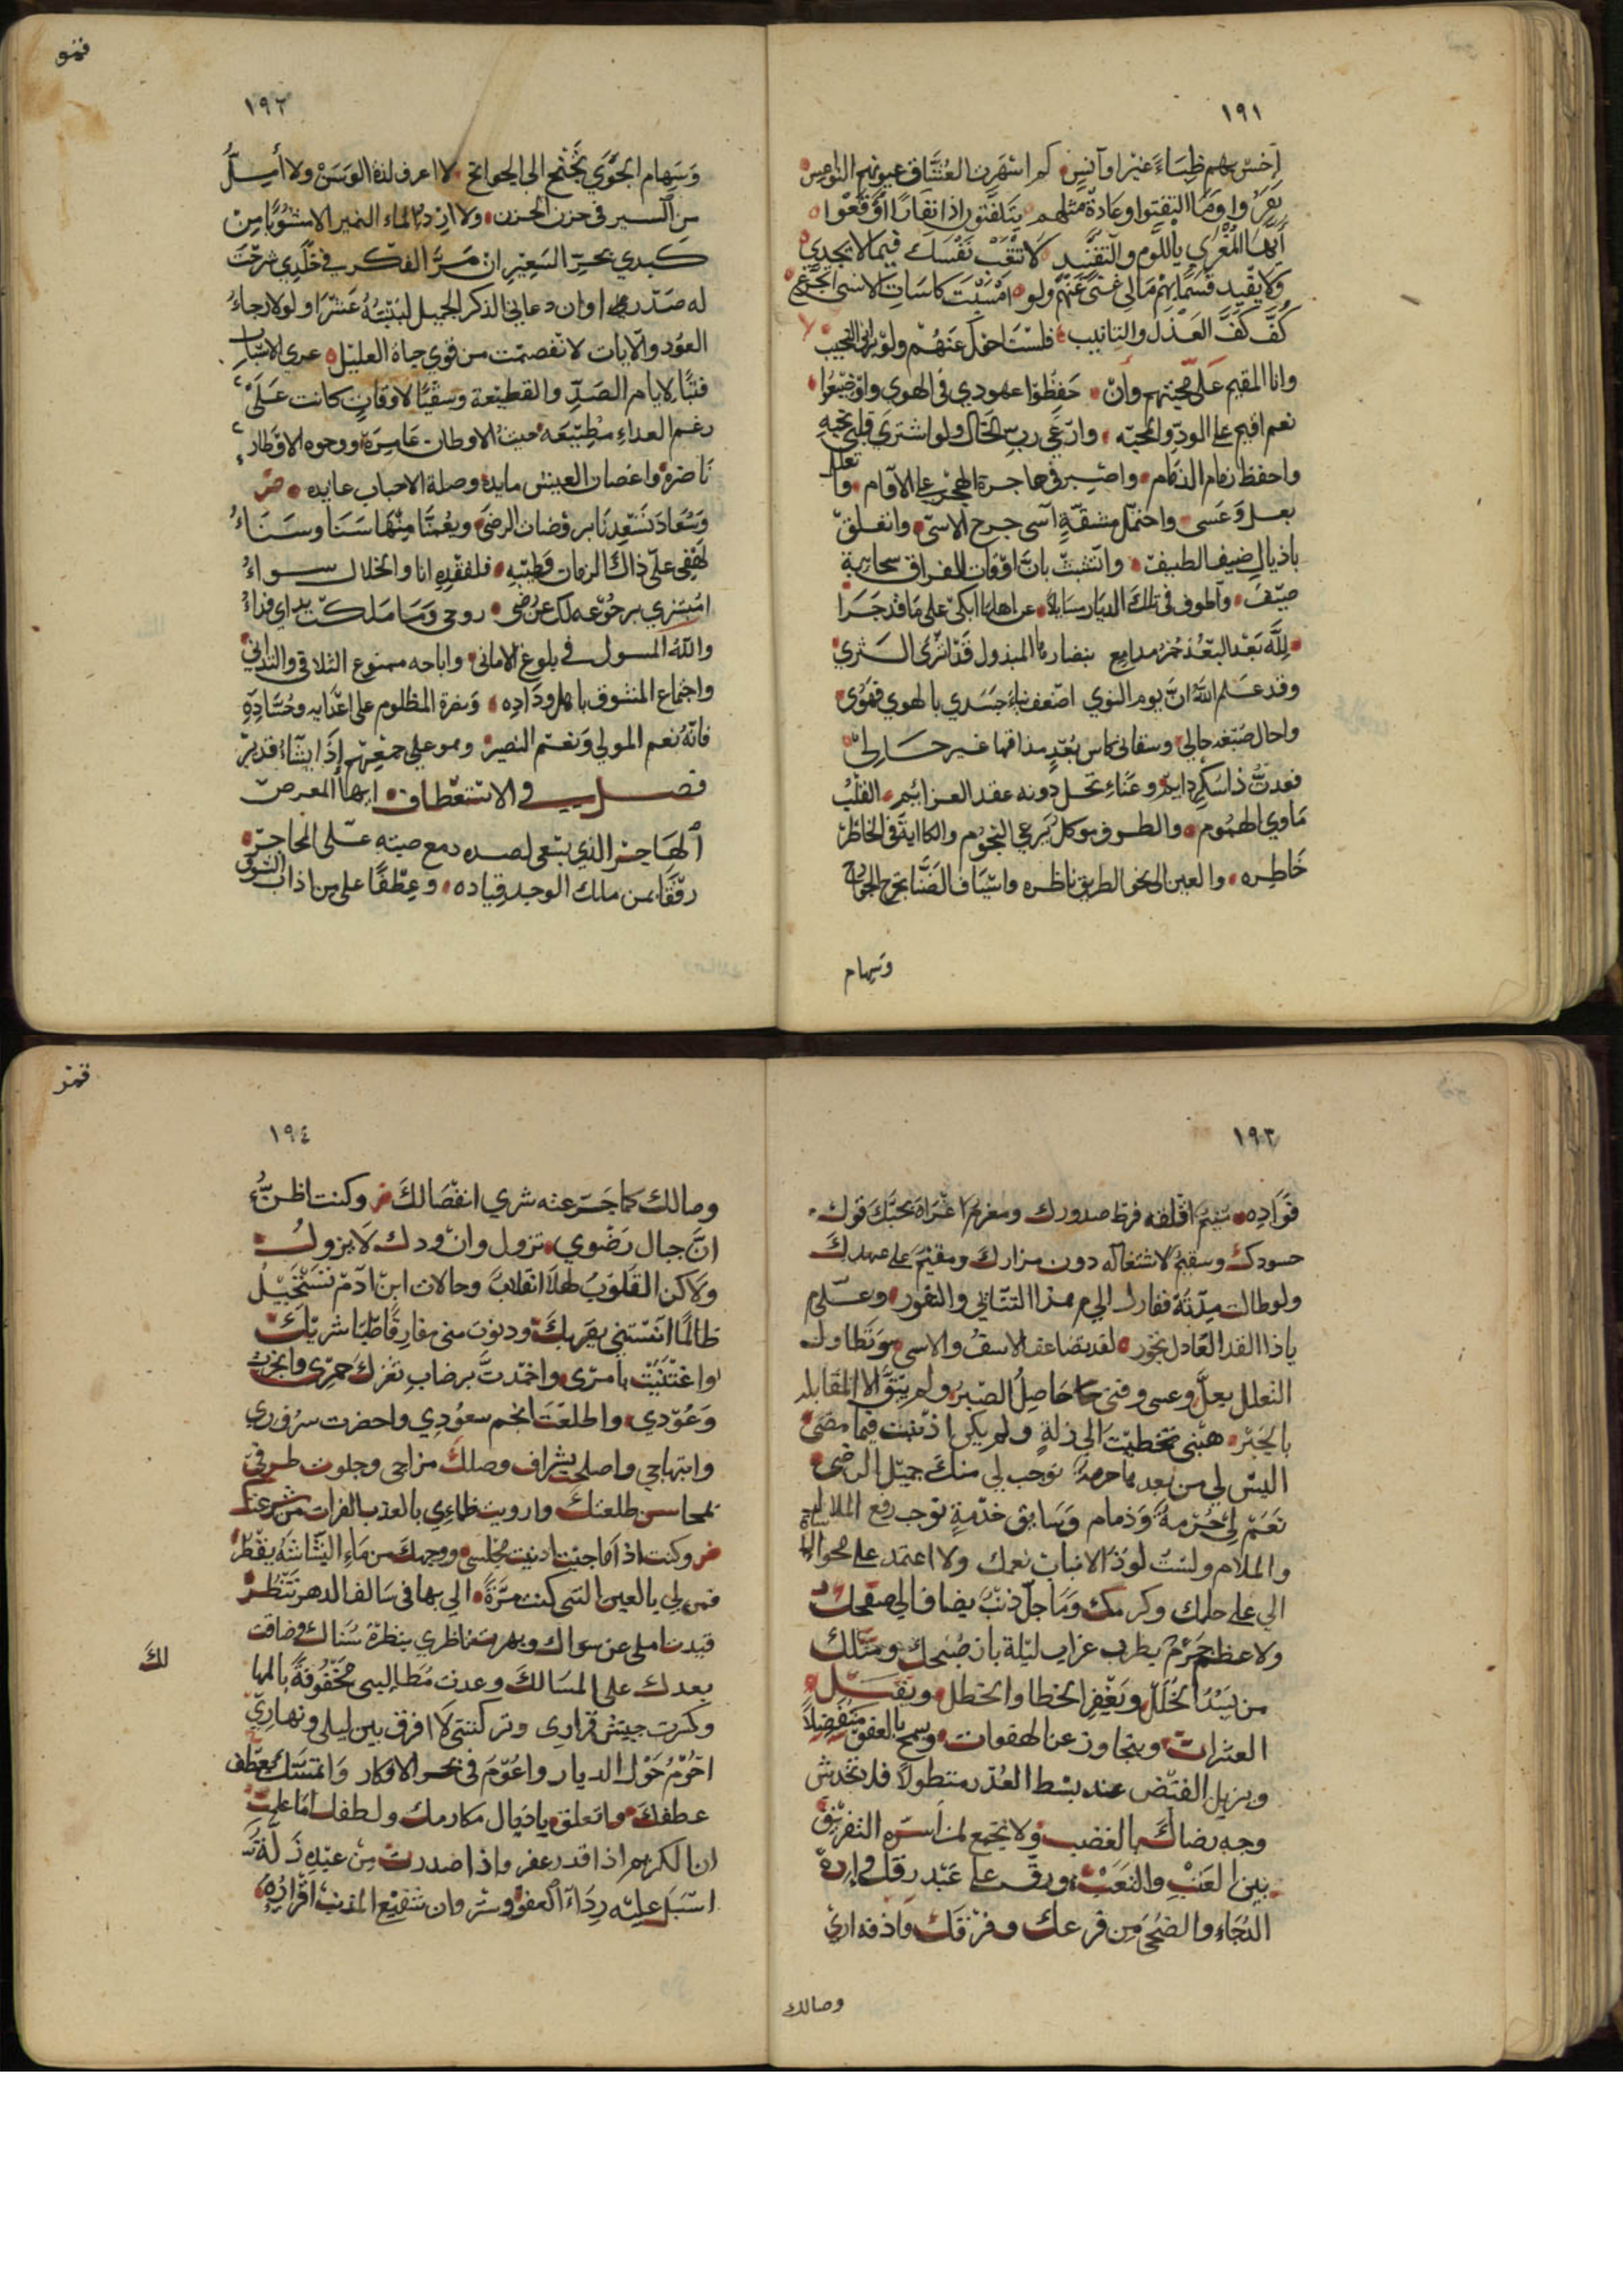 ١٩١
اخسر بهم ظباء غير اوآنس كم اشهرن العشاق عيونهم النواعس
نفروا وما التفتوا وعادة مثلهم يتلفتون اذا نفارا اوقعوا
أيها المغري باللوم والتفنيد لا تتعب نفسك فيما لا تجدي
ولا يفيد قسما بهم مالي غنى عنهم ولو امسيت كاسات الاسى اتجرع
كف كف العذل والتانيب فلست احول عنهم ولو براني النحيب
وانا المقيم على محبتهم وان حفظوا عهودي في الهوى او ضيعوا
نعم اقيم على الود والمحبه وارعى ربهم الحال ولو اشترى قلبي بحبه
واحفظ زمام الذمام واصبر في هاجرة الهجر على الآوام وا تعلل
بعل وعسى واحتمل مشقة آسى جرح الاسى واتعلق
باذيال ضيف الطيف واتشبث بان اوقات الفراق سحابة
صيف واطوف في تلك الديار سايلا عن اهلها ابكي على ما قد جرا
لله بعد البعد خمر مدامع بنضارها المبذول قد اثرى الثرى
وقد علم الله ان يوم النوى اضعف بناء جسدي بالهوى فقوى
واحال صبغه حالي وسقاني كاس بعد مذاقها غير حالي
فعدت ذا سكر دايم وعناء تحل دونه عقد العزائم القلب
ماوى الهموم والطرف موكل برعي النجوم والكابة في الخاطر
خاطره والعين الى نحو الطريق ناظره واسياف الضنا تجرح الجوارح
وسهام
فنمو
١٩٢
وسهام الجوى تجنح الى الجوانح لا اعرف لذة الوسن ولا أمل
من السير في حزن الحزن ولا ارد الماء النمير الا مشوبا من
كبدي بحر السعير ان مر الفكر في خلدي شرحت
له صدرا او ان دعاني الذكر الجميل لبيته عشرا ولولا رجاء
العود والايات لانفصمت من قوى حياة العليل عرى الاسباب
فتبا لايام الصد والقطيعة وسقيا لاوقات كانت على
رغم العداء مطيعه حيث الاوطان عامرة ووجوه الاقطار
ناضرة واغصان العيش مايدة وصلة الاحباب عايده
وسعاد تسعدنا بروضات الرضى ويعمنا منها سنا وسناء
لهفي على ذاك الزمان وطيبه فلفقده انا والخلال سواء
امبشري برجوعه لك عن رضى روحي وما ملكت يداي فداء
والله المسول في بلوغ الاماني واباحه ممنوع التلاقي والتداني
واجتماع المشوق باهل وداده ونصرة المظلوم على اعدايه وحساده
فانه نعم المولى ونعم النصير وهو على جمعهم إذا يشاء قدير
فصل في الاستعطاف ايها المعرض
الهاجر الذي يبتغي لصده دمع صبه على المحاجر
رفقا بمن ملك الوجد قياده وعطفا على من اذاب الشوق
١٩٣
فؤاده متيم اقلقه فرط صدورك ومغرم اغراه بحبك قول
حسودك وسقيم لا شغاله دون مزارك ومقيم على عهدك
ولو طالت مدة نفارك الى م هذا التنائي والنفور وعلى م
ياذا القد العادل تجور لقد تضاعف الاسف والاسى وتطاول
التعلل بعل وعسى وفنى حاصل الصبر ولم يبق الا المقابله
بالجبر هبني تخطيت الى زلة ولم يكن اذنبت فيما مضى
اليس لي من بعدها حرمة توجب لي منك جميل الرضى
نعم لي حرمة وذمام وسابق خدمة توجب رفع الملالة
والملام ولست لوذ الا نعمك ولا اعتمد على محو
الي على حلمك وكرمك وما جل ذنب يضاف الى صفحك
ولا عظم جرم بطرف غراب ليلة باز صبحك ومثلك
من يسد الخلل ويغفر الخطا والخطل ويقيل
العثرات ويتجاوز عن الهفوات ويسمح بالعفو متفضلا
ويزيل القبض عند بسط العذر متطولا فلا تخدش
وجه رضاك بالغضب ولا تجمع لمن أسره التفريق
بين العتب والتعب ورق على عبد رقك وارده
الدجاء والضحى من فرعك وفرقك واذقه اري
وصالك
فنمد
١٩٤
وصالك كما جرعته شري انفصالك وكنت اظن
ان جبال رضوى تزول وان ودك لا يزول
ولاكن القلوب لها انقلاب وحالات ابن ادم تستحيل
طالما انستني بقربك ودنوت مني مفارقا ظبا شربك
واغتنيت بامرى واخمدت برضاب ثغرك جمرى وانجزت
وعودي واطلعت انجم سعودي واحضرت سروري
وابتهاجي واصلح بشراف وصلك مزاجي وجلوت طرفي
بمحاسن طلعتك وارويت ظماءي بالعذب الفرات من شرعتك
وكنت اذا ما جيت ادنيت مجلسي ووجهك من ماء البشاشة يقطر
فمن لي بالعين التي كنت مرة الي بها في سالف الدهر تنظر
قيدت املي عن سواك وبهرت ناظري بنظرة سناك وضاقت
بعدك علي المسالك وعدت مطالبي محفوفة بالمها
لك
وكثرت جيش قراري وتركتني لا افرق بين ليلي ونهاري
احوم حول الديار واعوم في بحر الافكار واتمسك بعطف
عطفك واتعلق باذيال مكارمك ولطفك اما علمت
ان الكريم اذا قدر عفر واذا صدرت من عبده زلة
اسبل عليه رداء العفو وستر وان شفيع المذنب اقراره